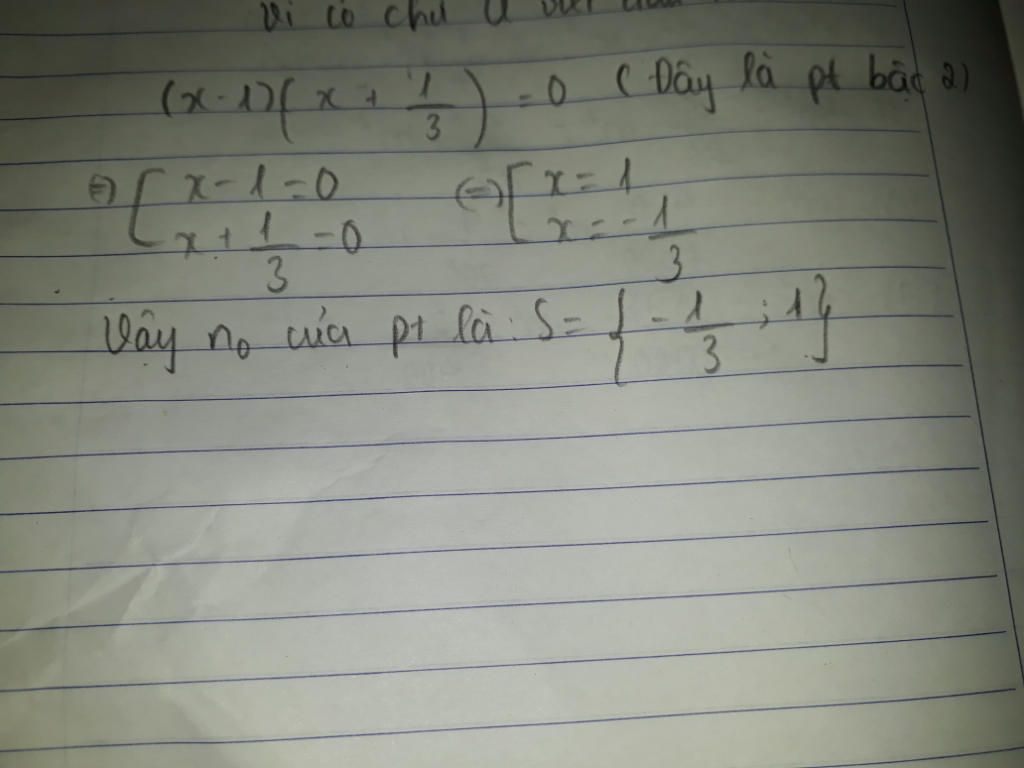 Vì có chữ
(x-1)(x + 1/3) = 0 (Đây là pt bậc 2)
(=) [ x-1=0 (=) [ x = 1
x + 1/3 = 0 x = -1/3
Vậy no của pt là: S = { -1/3 ; 1}